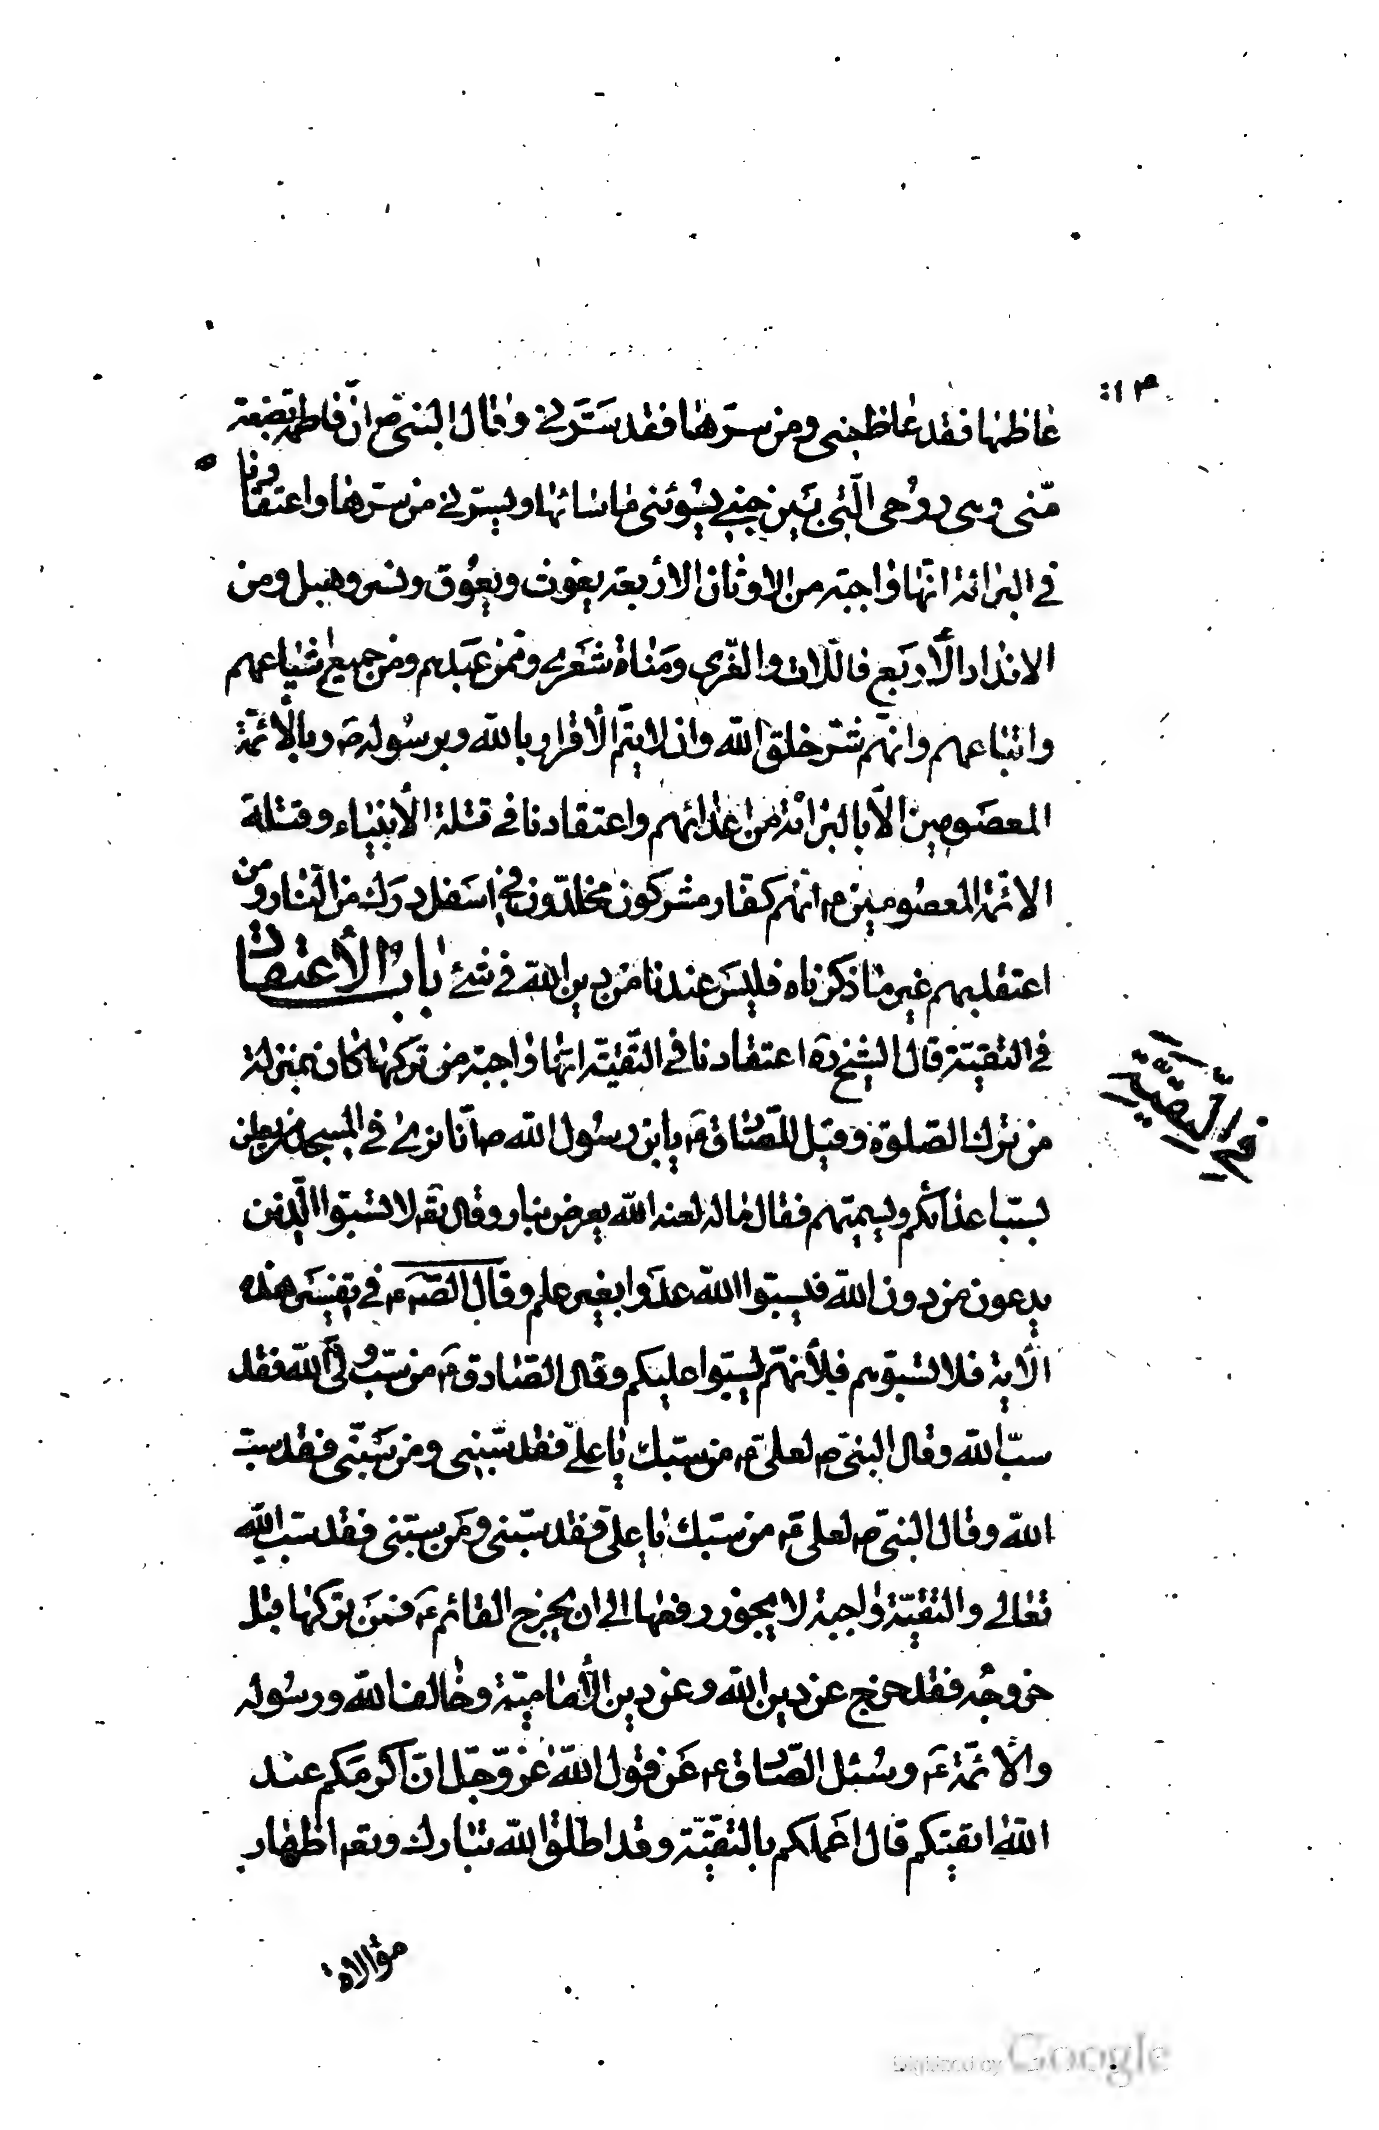 غاظها فقد غاظنى ومن سرّها فقد سَرّنى وقال النبى ص انّ فاطمة بضعة
منّى وهى روحى الّتى بَين جنبى يسُوئنى ماسائها ويسرّنى من سرّها واعتقادنا
فى البرائة انّها واجبة من الاوثان الاربعة يغوث ويعُوق ونسر وهبل ومن
الانداد الأربَع اللّات والعزّى ومَناة وشعرى وممّن عبَدهم ومن جميع اشياعهم
واتباعهم وانّهم شرّ خلق اللّه واذ لا يتمّ الأقرار باللّه وبرسُوله ص وبالأئمّة
المعصَومين الاّ بالبرائة من اعدائهم واعتقادنا فى قتلة الأنبياء وقتلة
الائمّة المعصُومين ع انّهم كفار مشركون مخلدّون فى اسفل درَك من النّار ومن
اعتقد بهم غير ما ذكرناه فليسَ عندنا من دين اللّه فى شئ باب الأعتقاد
فى التقيّة قال الشيخ ره اعتقادنا فى التّقيّة انّها واجبة من تركها كان بمنزلة
من ترك الصّلوة وقيل للصّادق ع يا ابن رسُول اللّه ص انّا نرى فى المسجد من يعلن
بسبّ اعدائكم ويسمّيهم فقال ما له لعنه اللّه يعرض بنا وقال تعَ لا تسبّوا الّذين
يدعون من دون اللّه فيسبّوا اللّه عدوا بغير علم وقال الصّ ع فى تفسيَر هذه
الأية فلا تسبّوهم فلأنّهم يسبّوا عليكم وقال الصّادق ع من سبّ ولىّ اللّه فقد
سبّ اللّه وقال النبىّ ص لعلىّ ع من سبّك يا علىّ فقد سبّنى ومن سَبّنى فقد سبّ
اللّه وقال النبىّ ص لعلى ع من سبّك يا علىّ فقد سبّنى ومَن سبّنى فقد سبّ اللّه
تعَالى والتقيّة واجبة لا يجوز رفعها الى ان يخرج القائم ع فمَن تركها قبل
خروجُه فقد خرج عن دين اللّه وعن دين الأماميّة وخالف اللّه ورسُوله
والأئمّة عَ وسُئل الصّادق ع عَن قول اللّه عزّ وجّل انّ اكرمَكم عند
اللّه اتقيكم قال اعَملكم بالتقيّة وقد اطلق اللّه تبارك وتعَ اظهار
موالاة
فى التّقيّة